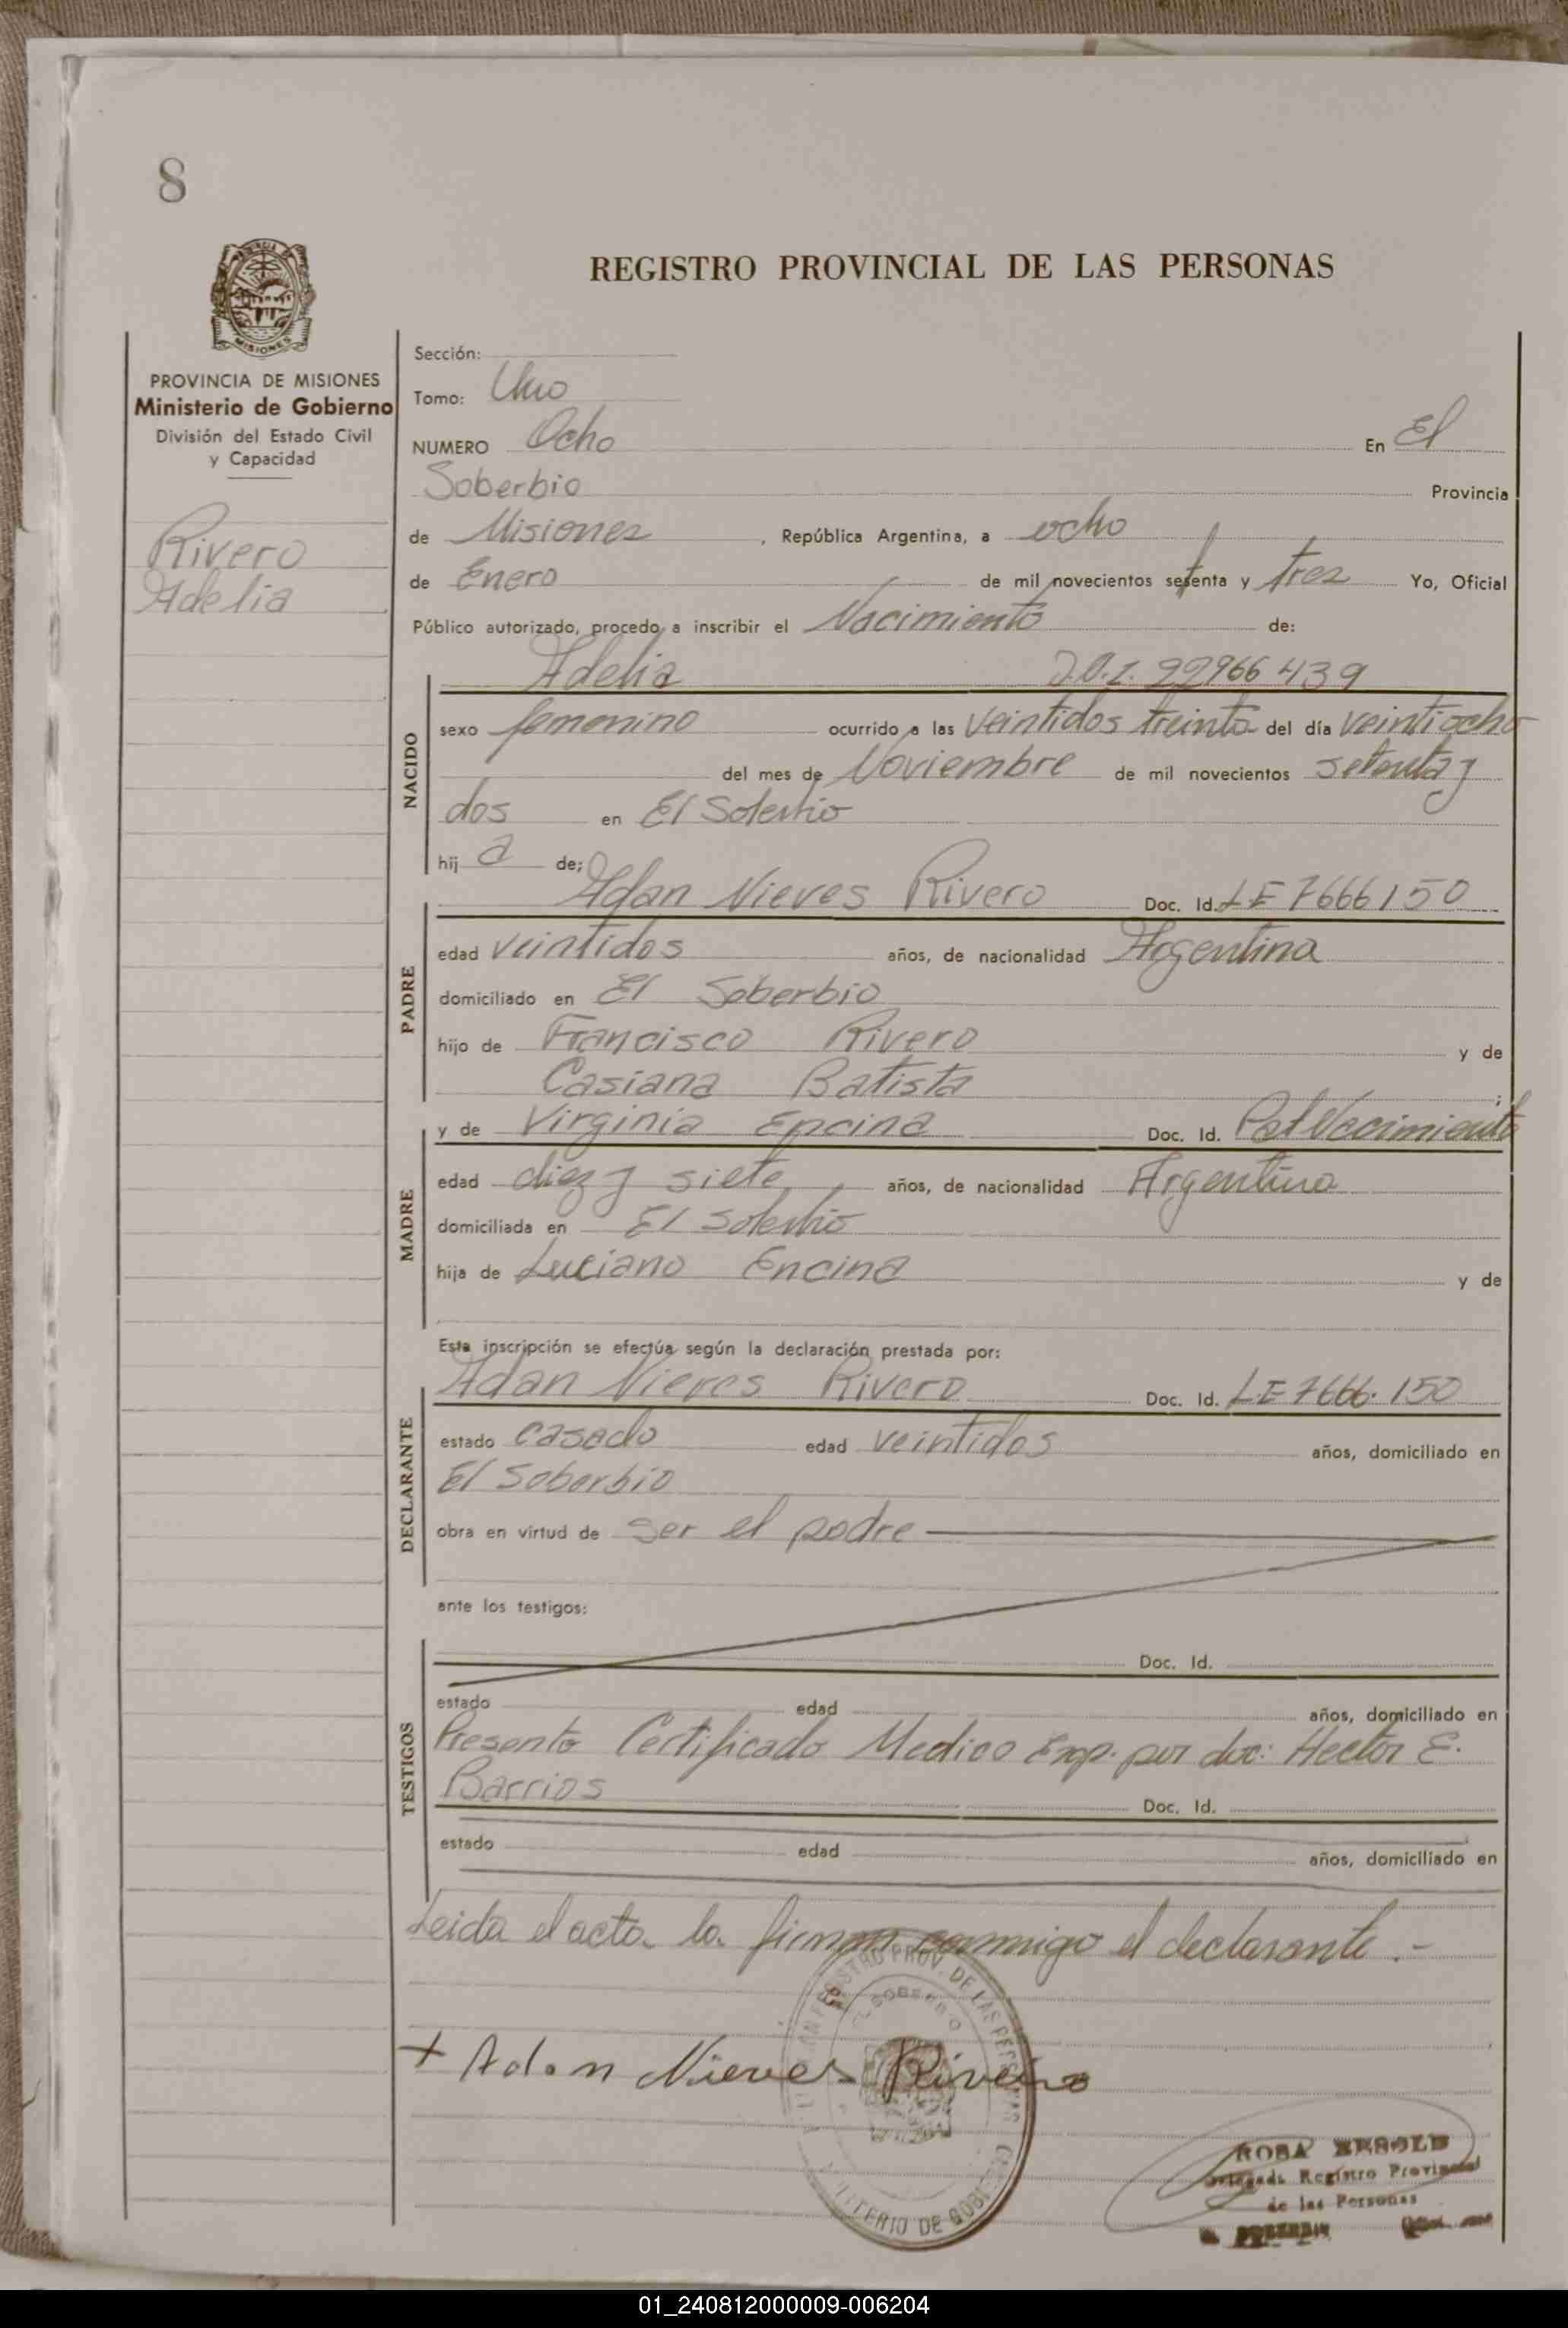 8
PROVINCIA DE MISIONES
Ministerio de Gobierno
División del Estado Civil
y Capacidad
Rivero
Adelia
REGISTRO PROVINCIAL DE LAS PERSONAS
Sección:
Tomo: Uno
NUMERO Ocho En El
Soberbio Provincia
de Misiones, República Argentina, a ocho
de Enero de mil novecientos setenta y tres Yo, Oficial
Público autorizado, procedo a inscribir el Nacimiento de:
Adelia 22966439
NACIDO
sexo femenino ocurrido a las veintidos treinta del día veintiocho
del mes de Noviembre de mil novecientos setenta y
dos en El Soberbio
hij a de:
Adan Nieves Rivero Doc. Id. LE 7666150
PADRE
edad veintidos años, de nacionalidad Argentina
domiciliado en El Soberbio
hijo de Francisco Rivero y de
Casiana Batista;
y de Virginia Encina Doc. Id. Nacimiento
MADRE
edad diez y siete años, de nacionalidad Argentina
domiciliada en El Soberbio
hija de Luciano Encina y de
Esta inscripción se efectúa según la declaración prestada por:
Adan Nieves Rivero Doc. Id. LE 7666.150
DECLARANTE
estado casado edad veintidos años, domiciliado en
El Soberbio
obra en virtud de ser el padre
ante los testigos:
Doc. Id.
TESTIGOS
estado edad años, domiciliado en
Presento Certificado Medico Exp. por doc: Hector E.
Barrios Doc. Id.
estado edad años, domiciliado en
Leida el acta la firman conmigo el declarante.-
+ Adan Nieves Rivero
REGISTRO PROV. DE LAS PERSONAS
EL SOBERBIO
MINISTERIO DE GOBIERNO
ROSA
Delegada Registro Provincial
de las Personas
01_240812000009-006204